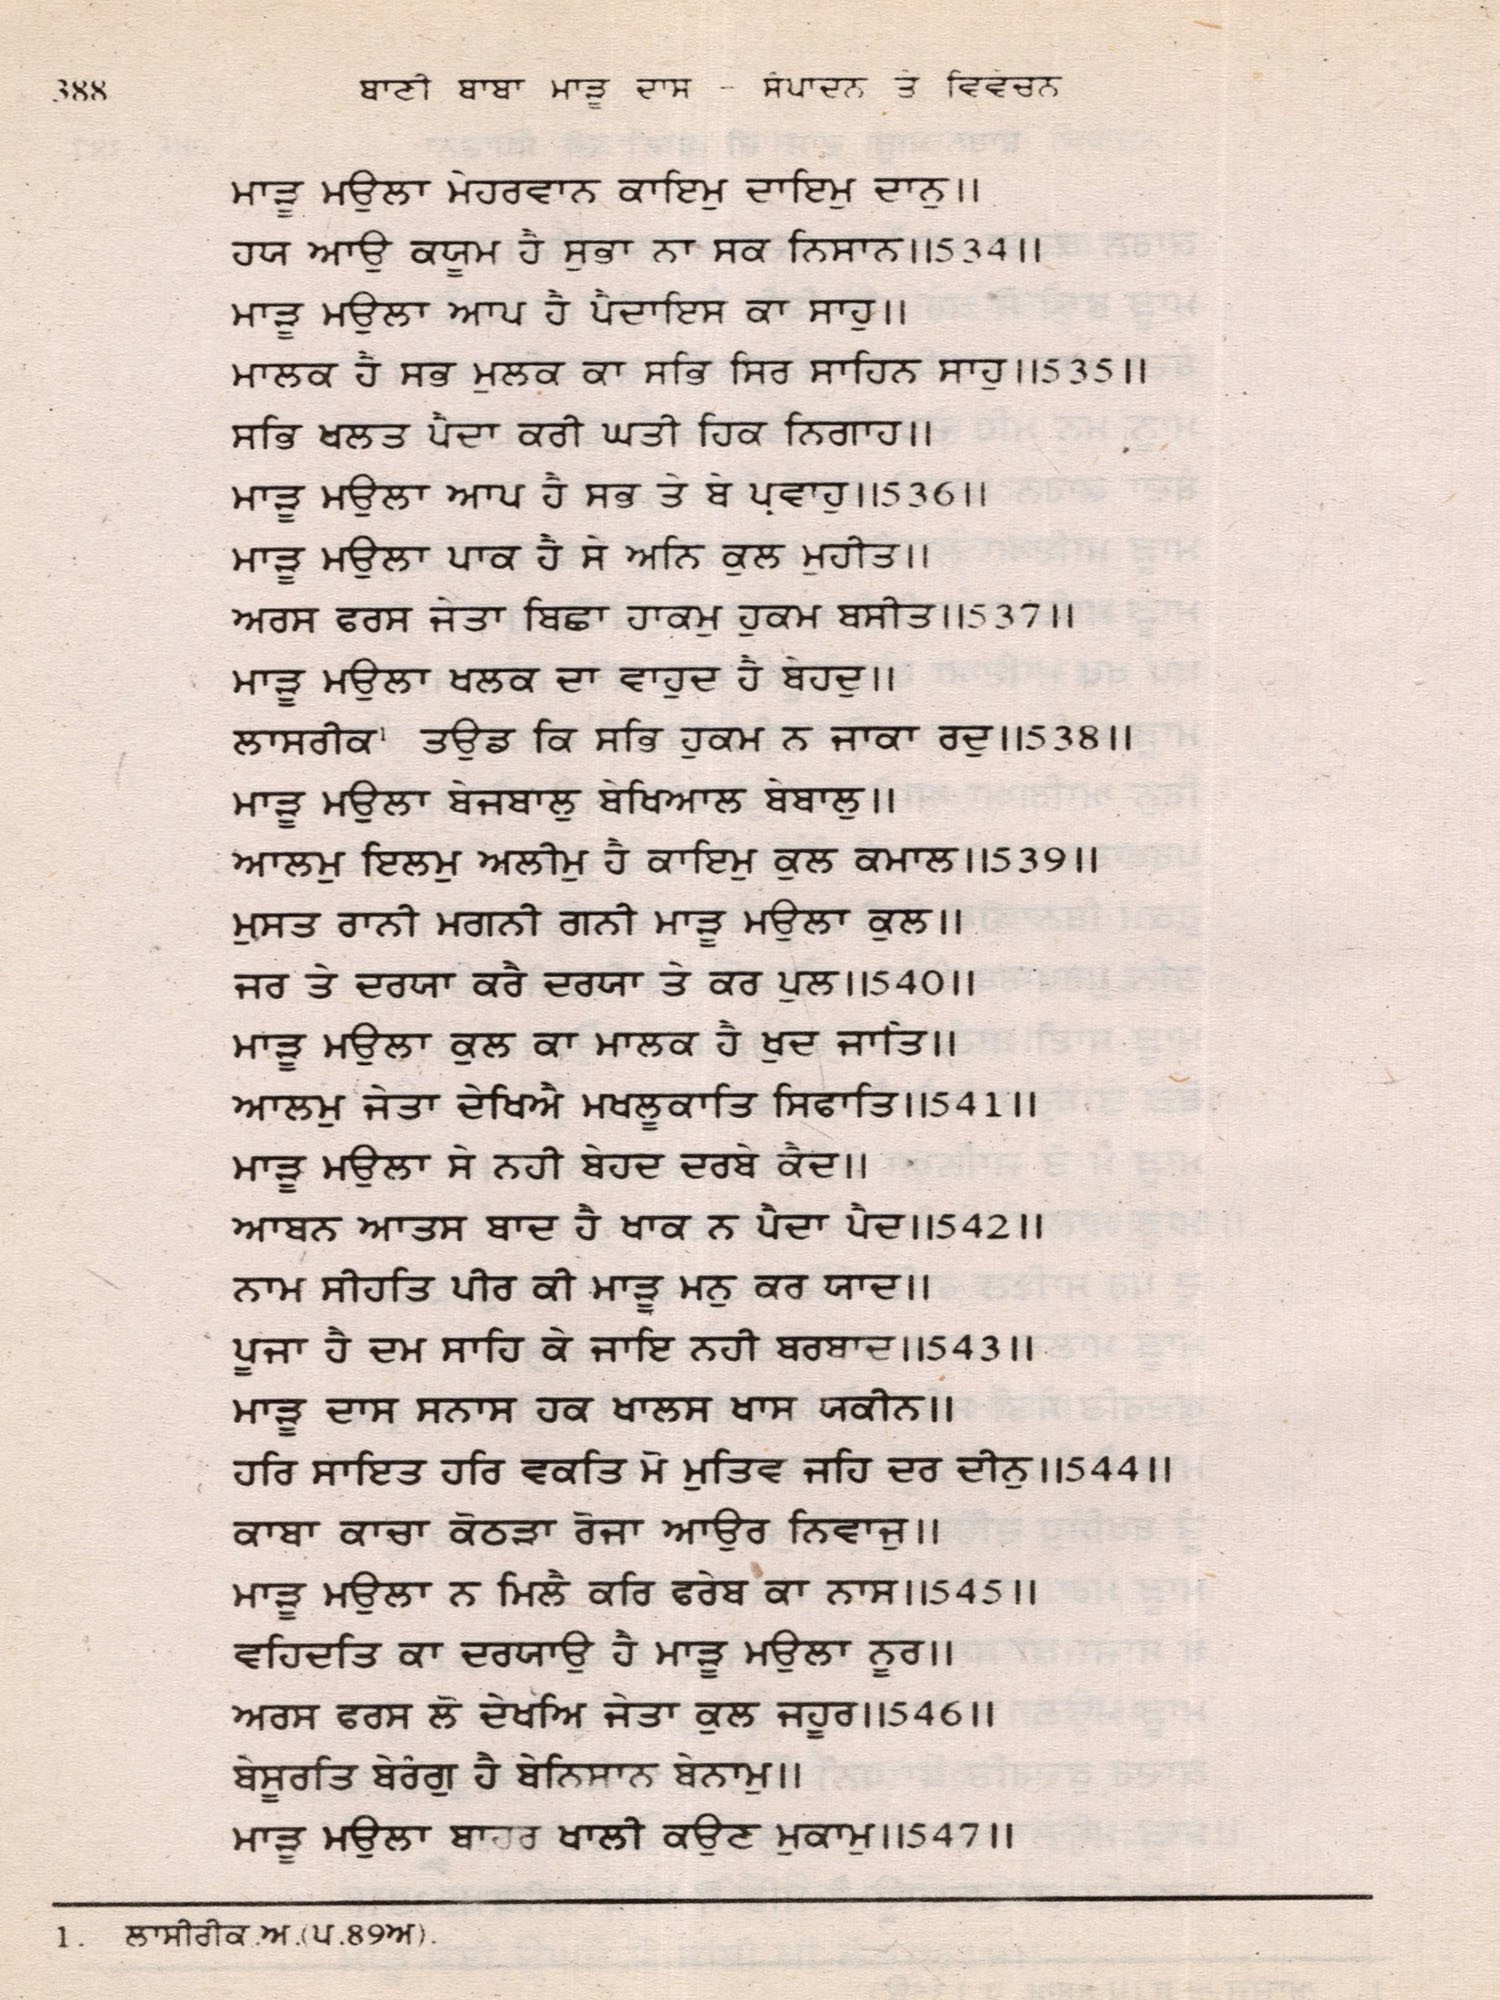 388 ਬਾਣੀ ਬਾਬਾ ਮਾੜੂ ਦਾਸ - ਸੰਪਾਦਨ ਤੇ ਵਿਵੇਚਨ
ਮਾੜੂ ਮਉਲਾ ਮੇਹਰਵਾਨ ਕਾਇਮੁ ਦਾਇਮੁ ਦਾਨੁ॥
ਹਯ ਆਉ ਕਯੂਮ ਹੈ ਸੁਭਾ ਨਾ ਸਕ ਨਿਸਾਨ॥534॥
ਮਾੜੂ ਮਉਲਾ ਆਪ ਹੈ ਪੈਦਾਇਸ ਕਾ ਸਾਹੁ॥
ਮਾਲਕ ਹੈ ਸਭ ਮੁਲਕ ਕਾ ਸਭਿ ਸਿਰ ਸਾਹਿਨ ਸਾਹੁ॥535॥
ਸਭਿ ਖਲਤ ਪੈਦਾ ਕਰੀ ਘਤੀ ਹਿਕ ਨਿਗਾਹ॥
ਮਾੜੂ ਮਉਲਾ ਆਪ ਹੈ ਸਭ ਤੇ ਬੇ ਪ੍ਰਵਾਹੁ॥536॥
ਮਾੜੂ ਮਉਲਾ ਪਾਕ ਹੈ ਸੇ ਅਨਿ ਕੁਲ ਮੁਹੀਤ॥
ਅਰਸ ਫਰਸ ਜੇਤਾ ਬਿਛਾ ਹਾਕਮੁ ਹੁਕਮ ਬਸੀਤ॥537॥
ਮਾੜੂ ਮਉਲਾ ਖਲਕ ਦਾ ਵਾਹੁਦ ਹੈ ਬੇਹਦੁ॥
ਲਾਸਰੀਕ¹ ਤਉਡ ਕਿ ਸਭਿ ਹੁਕਮ ਨ ਜਾਕਾ ਰਦੁ॥538॥
ਮਾੜੂ ਮਉਲਾ ਬੇਜਬਾਲੁ ਬੇਖਿਆਲ ਬੇਬਾਲੁ॥
ਆਲਮੁ ਇਲਮੁ ਅਲੀਮੁ ਹੈ ਕਾਇਮੁ ਕੁਲ ਕਮਾਲ॥539॥
ਮੁਸਤ ਰਾਨੀ ਮਗਨੀ ਗਨੀ ਮਾੜੂ ਮਉਲਾ ਕੁਲ॥
ਜਰ ਤੇ ਦਰਯਾ ਕਰੈ ਦਰਯਾ ਤੇ ਕਰ ਪੁਲ॥540॥
ਮਾੜੂ ਮਉਲਾ ਕੁਲ ਕਾ ਮਾਲਕ ਹੈ ਖੁਦ ਜਾਤਿ॥
ਆਲਮੁ ਜੇਤਾ ਦੇਖਿਐ ਮਖਲੂਕਾਤਿ ਸਿਫਾਤਿ॥541॥
ਮਾੜੂ ਮਉਲਾ ਸੇ ਨਹੀ ਬੇਹਦ ਦਰਬੇ ਕੈਦ॥
ਆਬਨ ਆਤਸ ਬਾਦ ਹੈ ਖਾਕ ਨ ਪੈਦਾ ਪੈਦ॥542॥
ਨਾਮ ਸੀਹਤਿ ਪੀਰ ਕੀ ਮਾੜੂ ਮਨੁ ਕਰ ਯਾਦ॥
ਪੂਜਾ ਹੈ ਦਮ ਸਾਹਿ ਕੇ ਜਾਇ ਨਹੀ ਬਰਬਾਦ॥543॥
ਮਾੜੂ ਦਾਸ ਸਨਾਸ ਹਕ ਖਾਲਸ ਖਾਸ ਯਕੀਨ॥
ਹਰਿ ਸਾਇਤ ਹਰਿ ਵਕਤਿ ਮੋ ਮੁਤਿਵ ਜਹਿ ਦਰ ਦੀਨੁ॥544॥
ਕਾਬਾ ਕਾਚਾ ਕੋਠੜਾ ਰੋਜਾ ਆਉਰ ਨਿਵਾਜੁ॥
ਮਾੜੂ ਮਉਲਾ ਨ ਮਿਲੈ ਕਰਿ ਫਰੇਬ ਕਾ ਨਾਸ॥545॥
ਵਹਿਦਤਿ ਕਾ ਦਰਯਾਉ ਹੈ ਮਾੜੂ ਮਉਲਾ ਨੂਰ॥
ਅਰਸ ਫਰਸ ਲੋ ਦੇਖਅਿ ਜੇਤਾ ਕੁਲ ਜਹੂਰ॥546॥
ਬੇਸੂਰਤਿ ਬੇਰੰਗੁ ਹੈ ਬੇਨਿਸਾਨ ਬੇਨਾਮੁ॥
ਮਾੜੂ ਮਉਲਾ ਬਾਹਰ ਖਾਲੀ ਕਉਣ ਮੁਕਾਮੁ॥547॥
1. ਲਾਸੀਰੀਕ.ਅ.(ਪ.89ਅ).